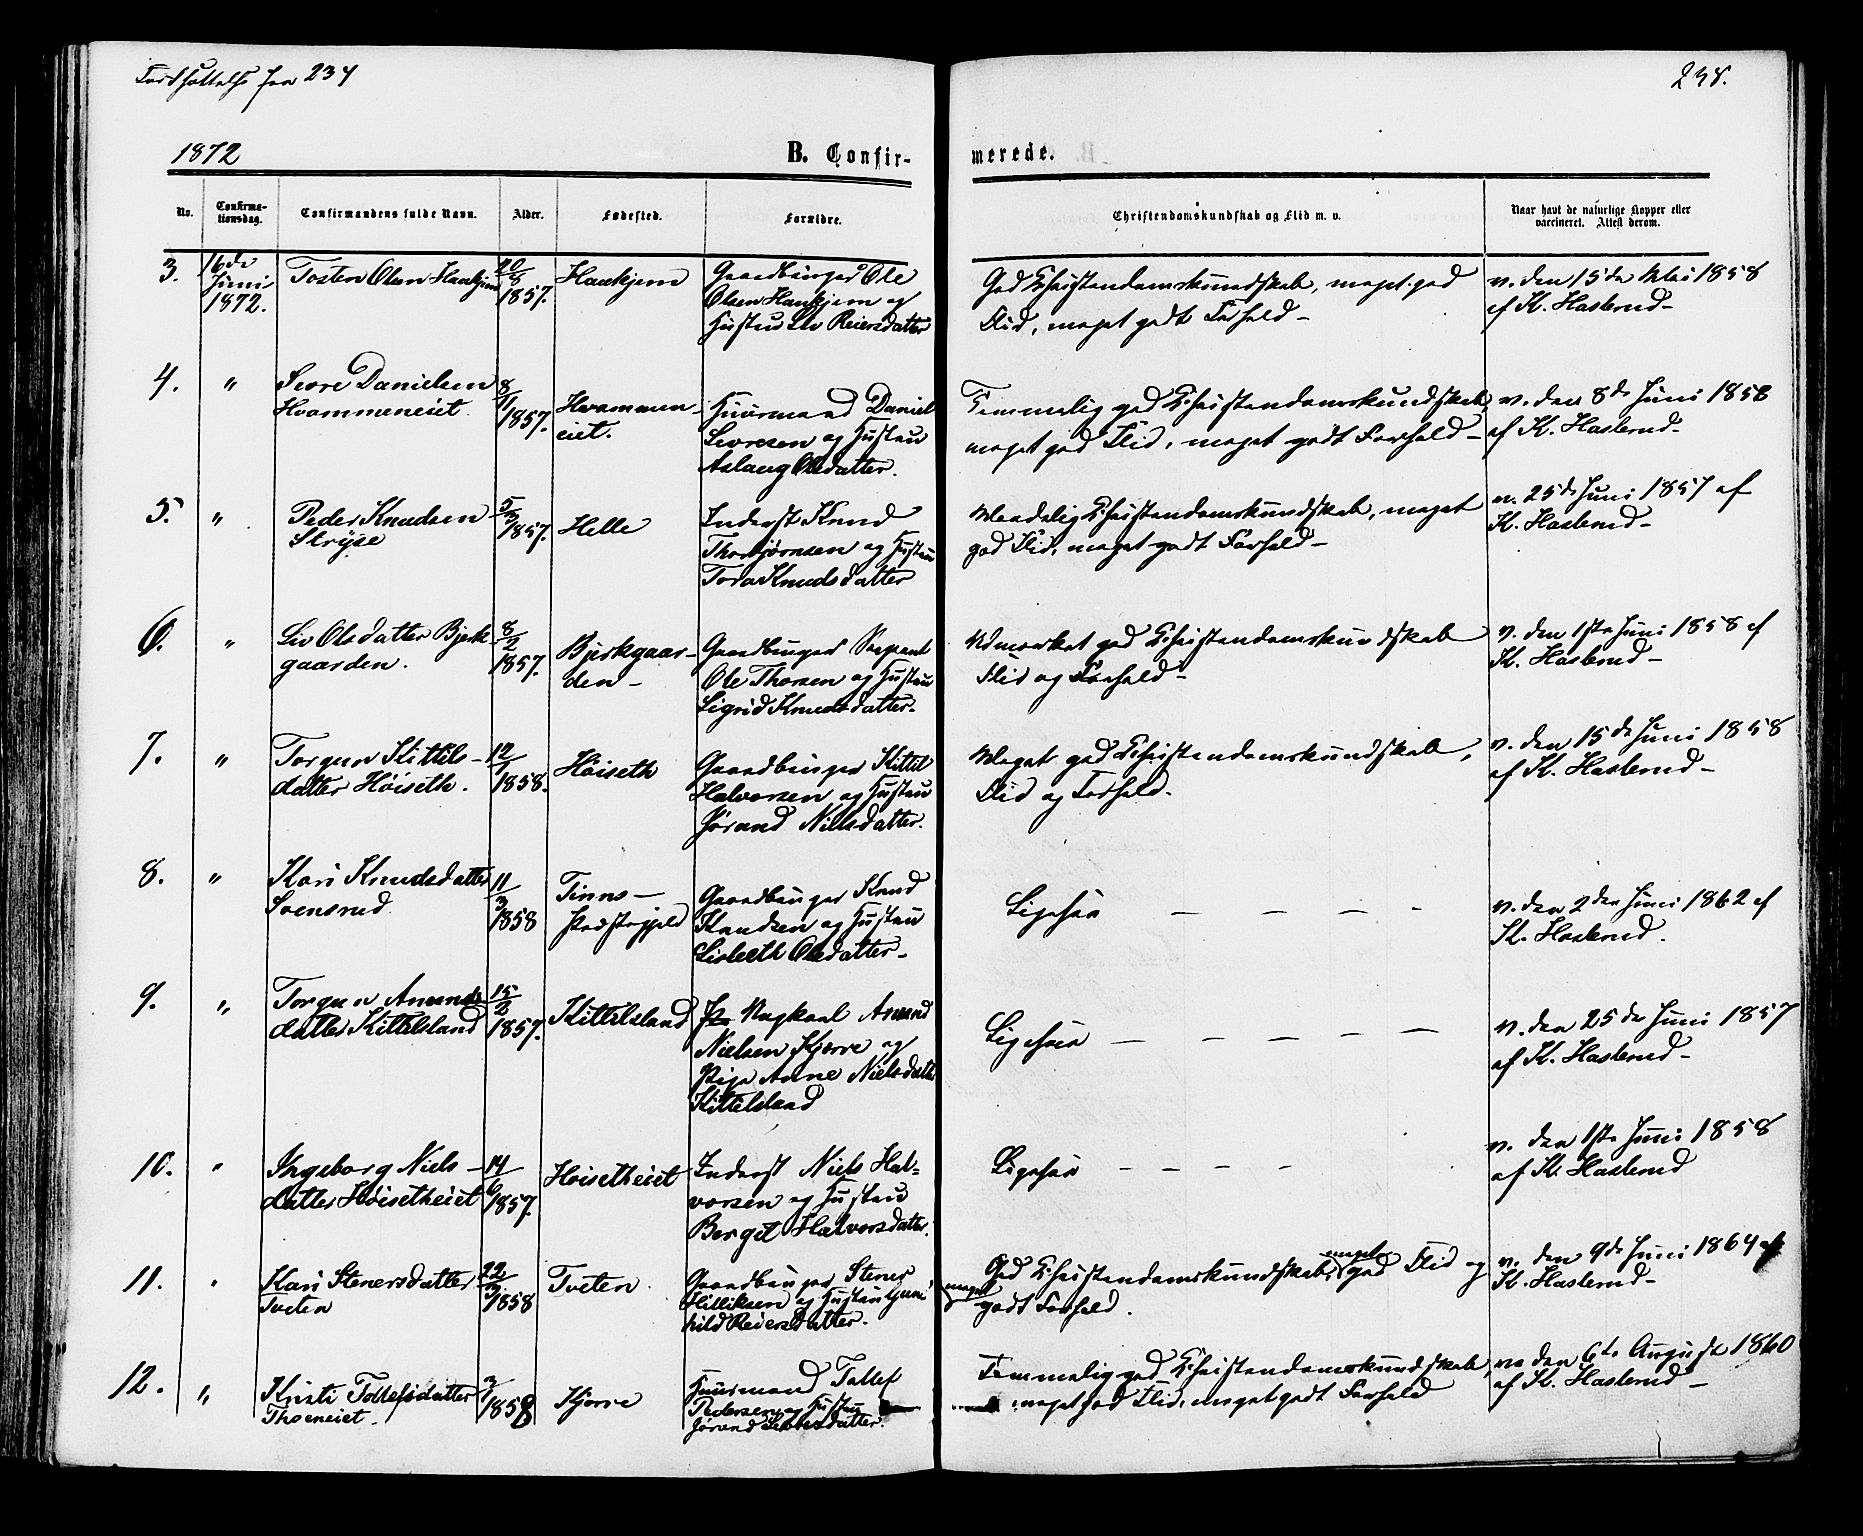 Fortsættelse fra 234
238.
1872
B. Confir-
merede.
No.
Confirma-
tionsdag.
Confirmandens fulde Navn.
Alder.
Fødested.
Forældre.
Christendomskundskab og Flid m. v.
Naar havt de naturlige Kopper eller
vaccineret. Attest derom.
3.
16de
Juni
1872.
Tosten Olsen Haukjem
20/8
1857.
Haukjem
Gaardbruger Ole
Olsen Haukjem og
Hustru Liv Reiersdatter
God Christendomskundskab, meget god
Flid, meget godt Forhold –
v. den 15de Mai 1858
af K. Haslerud –
4.
"
Sevre Danielsen
Hvammeneiet
8/11
1857.
Hvammen-
eiet.
Huusmand Daniel
Sevresen og Hustru
Aslaug Olsdatter.
Temmelig god Christendomskundskab,
meget god Flid, meget godt Forhold –
v. den 8de Juni 1858
af K. Haslerud –
5.
"
Peder Knudsen
5/
1857.
Helle
Inderst Knud
Thorbjørnsen og Hustru
Tora Knudsdatter
Maadelig Christendomskundskab, meget
god Flid, meget godt Forhold –
v. 25de Juni 1857 af
K. Haslerud –
6.
"
Liv Olsdatter Bjerk
gaarden.
8/2
1857.
Bjerkgaar-
den –
Gaardbruger Sergeant
Ole Thorsen og Hustru
Sigrid Knudsdatter.
Udmærket god Christendomskundskab
Flid og Forhold –
v. den 1ste Juni 1858 af
K. Haslerud –
7.
"
Torgun Kittils-
datter Høiseth.
12/1
1858.
Høiseth
Gaardbruger Kittil
Halvorsen og Hustru
Jørand Nielsdatter.
Meget god Christendomskundskab,
Flid og Forhold.
v. den 15de Juni 1858
af K. Haslerud –
8.
"
Kari Knudsdatter
Svensrud
11/3
1858
Tinns –
Præstegjeld
Gaardbruger Knud
Knudsen og Hustru
Lisbeth Olsdatter –
Ligesaa – – – –
v. den 2den Juni 1862 af
K. Haslerud.
9.
"
Torgun Amunds
datter Kittilsland
15/2
1857.
Kittilsland
Ungkarl Amund
Nielsen Kjørre og
Pige Anne Nielsdatter
Kittilsland
Ligesaa – – – –
v. den 25de Juni 1857
af K. Haslerud –
10.
"
Ingeborg Niels –
datter Høisetheiet
14/6
1857.
Høisetheiet
Inderst Niels Hal=
vorsen og Hustru
Bergit Halvorsdatter.
Ligesaa – – – –
v. den 1ste Juni 1858
af K. Haslerud
11.
"
Kari Stenersdatter
Tveten
22/3
1858
Tveten
Gaardbruger Stener
Helliksen og Hustru Gun
hild Reiersdatter.
God Christendomskundskab, meget god Flid og
meget godt Forhold.
v. den 9de Juni 1864 af
K. Haslerud –
12.
"
Kristi Tollefsdatter
3/1
1858
Kjørre
Huusmand Tollef
Pedersen og Hustru
Jørand
Temmelig god Christendomskundskab,
meget god Flid, meget godt Forhold
va den 6te August 1860
af K. Haslerud –